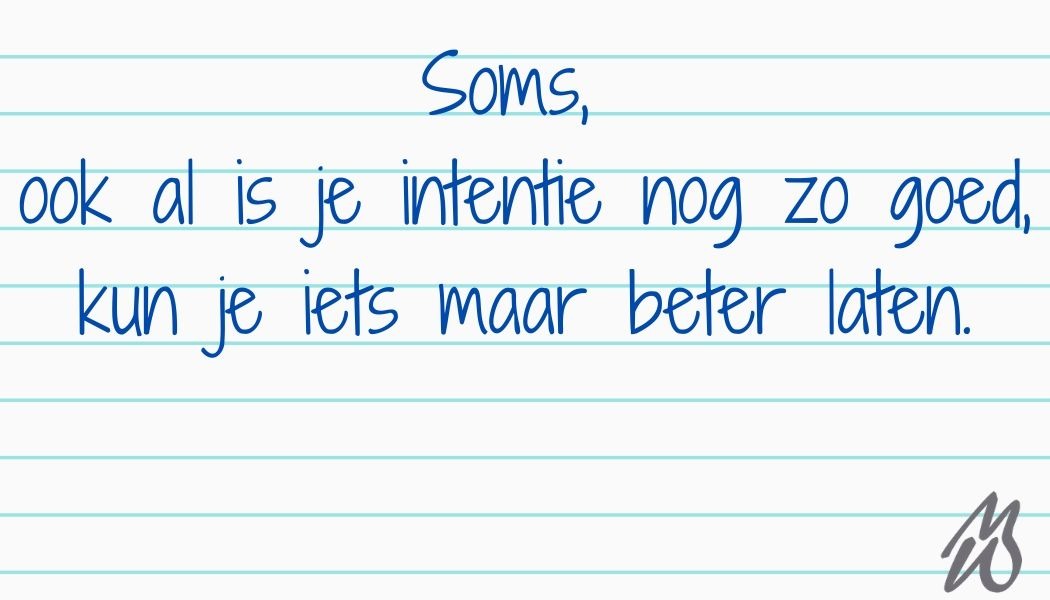 Soms,
ook al is je intentie nog zo goed,
kun je iets maar beter laten.